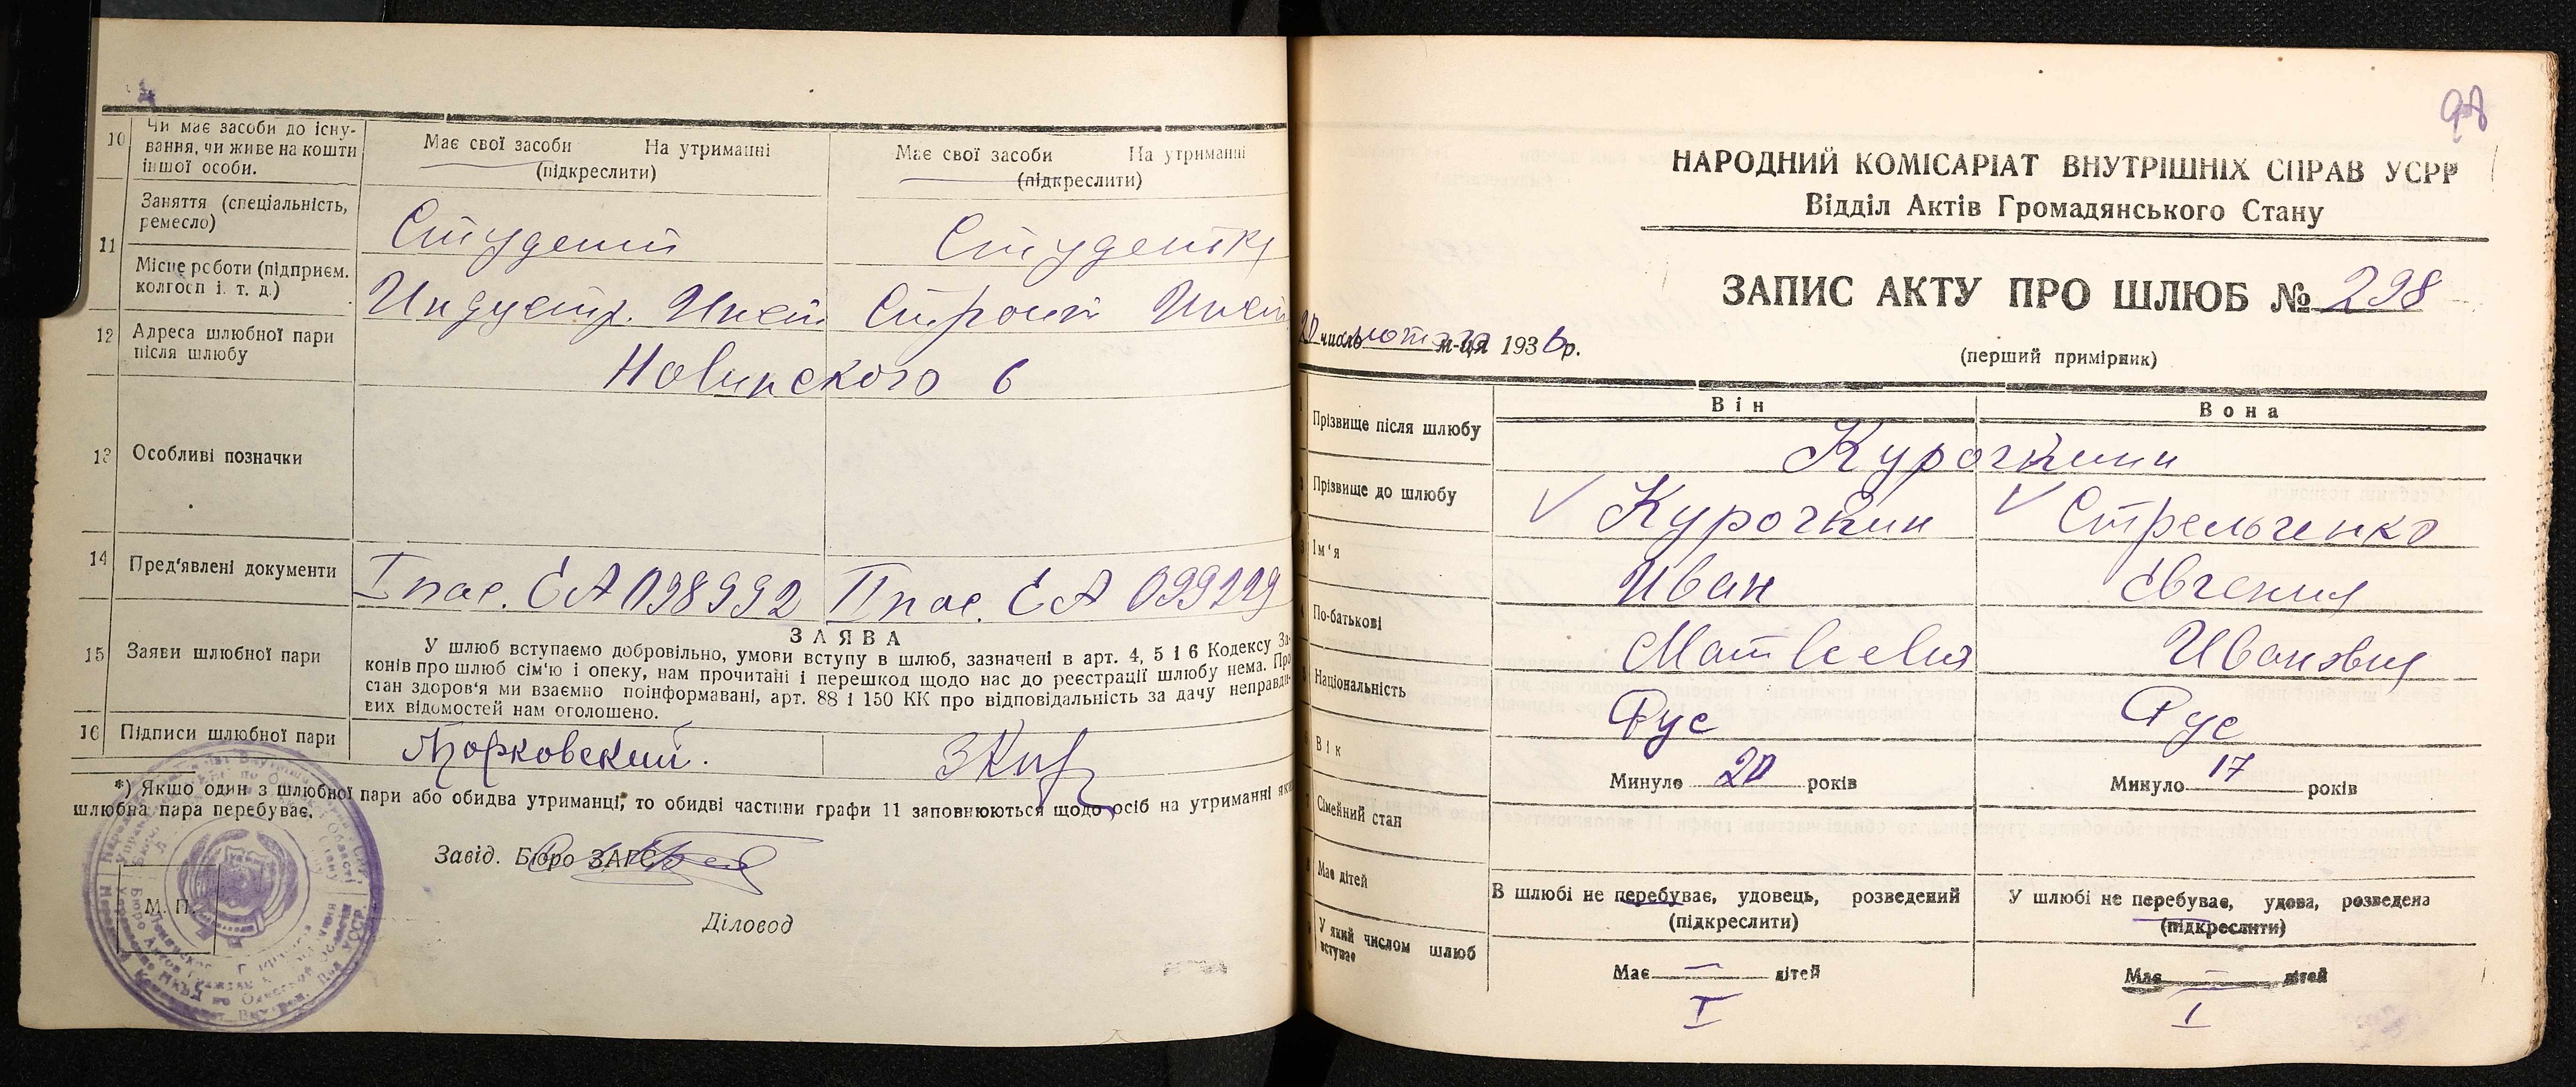 10 Чи має засоби до існу-
вання, чи живе на кошти
іншої особи.
Має свої засоби На утриманні
(підкреслити)
Має свої засоби На утриманні
(підкреслити)
11 Заняття (спеціальність,
ремесло)
Студент
Студентка
Місце роботи (підприєм.
колгосп і. т. д.)
Индустр. Инст
Строит Инст
12 Адреса шлюбної пари
після шлюбу
Новинского 6
13 Особливі позначки
14 Пред'явлені документи
I пас. ЕА 098992
II пас. ЕА 099229
15 Заяви шлюбної пари
ЗАЯВА
У шлюб вступаємо добровільно, умови вступу в шлюб, зазначені в арт. 4, 5 і 6 Кодексу За-
конів про шлюб сім'ю і опеку, нам прочитані і перешкод щодо нас до реєстрації шлюбу нема. Про
стан здоров'я ми взаємно поінформавані, арт. 88 і 150 КК про відповідальність за дачу неправди-
вих відомостей нам оголошено.
16 Підписи шлюбної пари
*) Якщо один з шлюбної пари або обидва утриманці, то обидві частини графи 11 заповнюються щодо осіб на утриманні яких
шлюбна пара перебуває.
Завід. Бюро ЗАГС
М. П.
Діловод
98
НАРОДНИЙ КОМІСАРІАТ ВНУТРІШНІХ СПРАВ УСРР
Відділ Актів Громадянського Стану
ЗАПИС АКТУ ПРО ШЛЮБ № 298
20 числа лютого м-ця 1936 р.
(перший примірник)
Він
Вона
Прізвище після шлюбу
Курочкин
Прізвище до шлюбу
Курочкин
Стрельченко
Ім'я
Иван
Евгения
По-батькові
Матвеевич
Ивановна
Національність
Рус
Рус
Вік
Минуло 20 років
Минуло 17 років
Сімейний стан
Має дітей
В шлюбі не перебуває, удовець, розведений
(підкреслити)
У шлюбі не перебуває, удова, розведена
(підкреслити)
У який числом шлюб
вступає
Має — дітей
Має — дітей
I
I